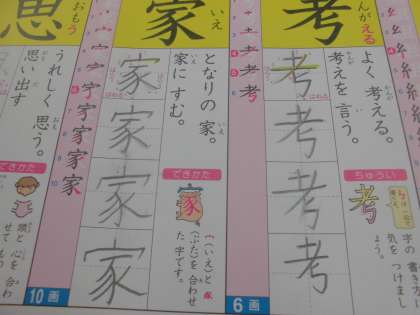 んがえる
考
よく 考える。
かんが
考えを 言う。
かんが
い
ちゅうい
考
字の 書き方
気を つけまし
ょう。
考
考
考
考
6画
いえ
家
となりの 家。
いえ
家に すむ。
いえ
できかた
家
宀(いえ)と
(ぶた)を 合わせ
た 字です。
家
家
家
家
10画
おもう
思
うれしく 思う。
おも
思い出す
おも だ
できかた
頭と 心を 合わ
せて もの